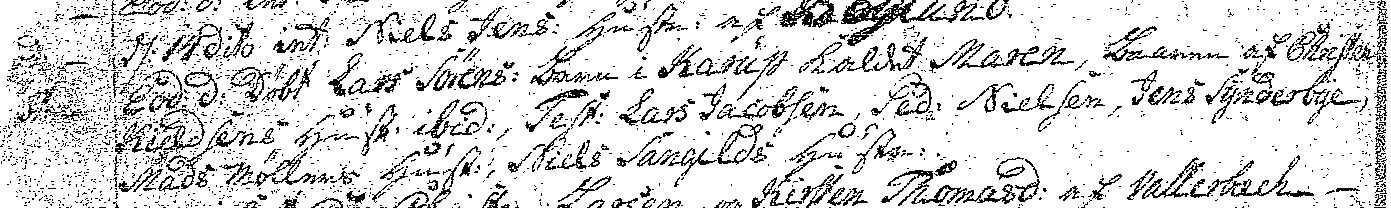 dito int: Niels Jens: Hustr: af
Eod: d: Døbt Lars Sörens: Barn i Karup kaldet Maren, Baaren af Christen
Hust: ibid:, Test: Lars Jacobsen, Ped: Nielsen, Jens Synderbye,
Mads Möllers Hust:, Niels Sangilds Hustr:
Larsen og Kirsten Thomasd: af Vallerbæch